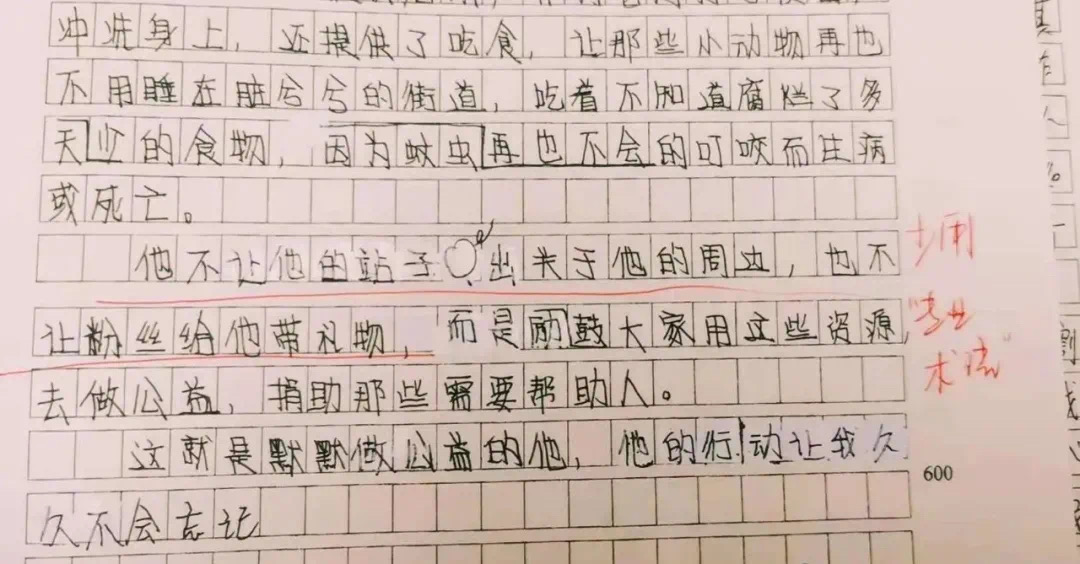 冲洗身上，还提供了吃食，让那些小动物再也
不用睡在脏兮兮的街道，吃着不知道腐烂了多
天少的食物，因为蚊虫再也不会的叮咬而生病
或死亡。
他不让他的站子出关于他的周边，也不
少用
让粉丝给他带礼物，而是励鼓大家用这些资源，
"专业
术语"
去做公益，捐助那些需要帮助人。
这就是默默做公益的他，他的行动让我久
600
久不会忘记